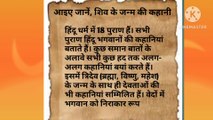 KINEMASTER
आइए जानें, शिव के जन्म की कहानी
हिंदू धर्म में 18 पुराण हैं। सभी
पुराण हिंदू भगवानों की कहानियां
बताते हैं। कुछ समान बातों के
अलावा सभी कुछ हद तक अलग-
अलग कहानियां बयां करते हैं।
इसमें त्रिदेव (ब्रह्मा, विष्णु, महेश)
के जन्म के साथ ही देवताओं की
भी कहानियां सम्मिलित हैं। वेदों में
भगवान को निराकार रूप